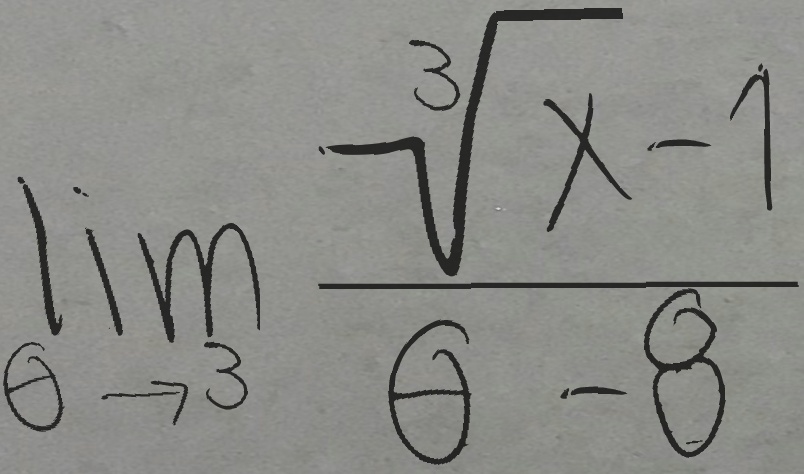 lim_{θ→3} \frac{\sqrt[3]{x} - 1}{θ - 8}